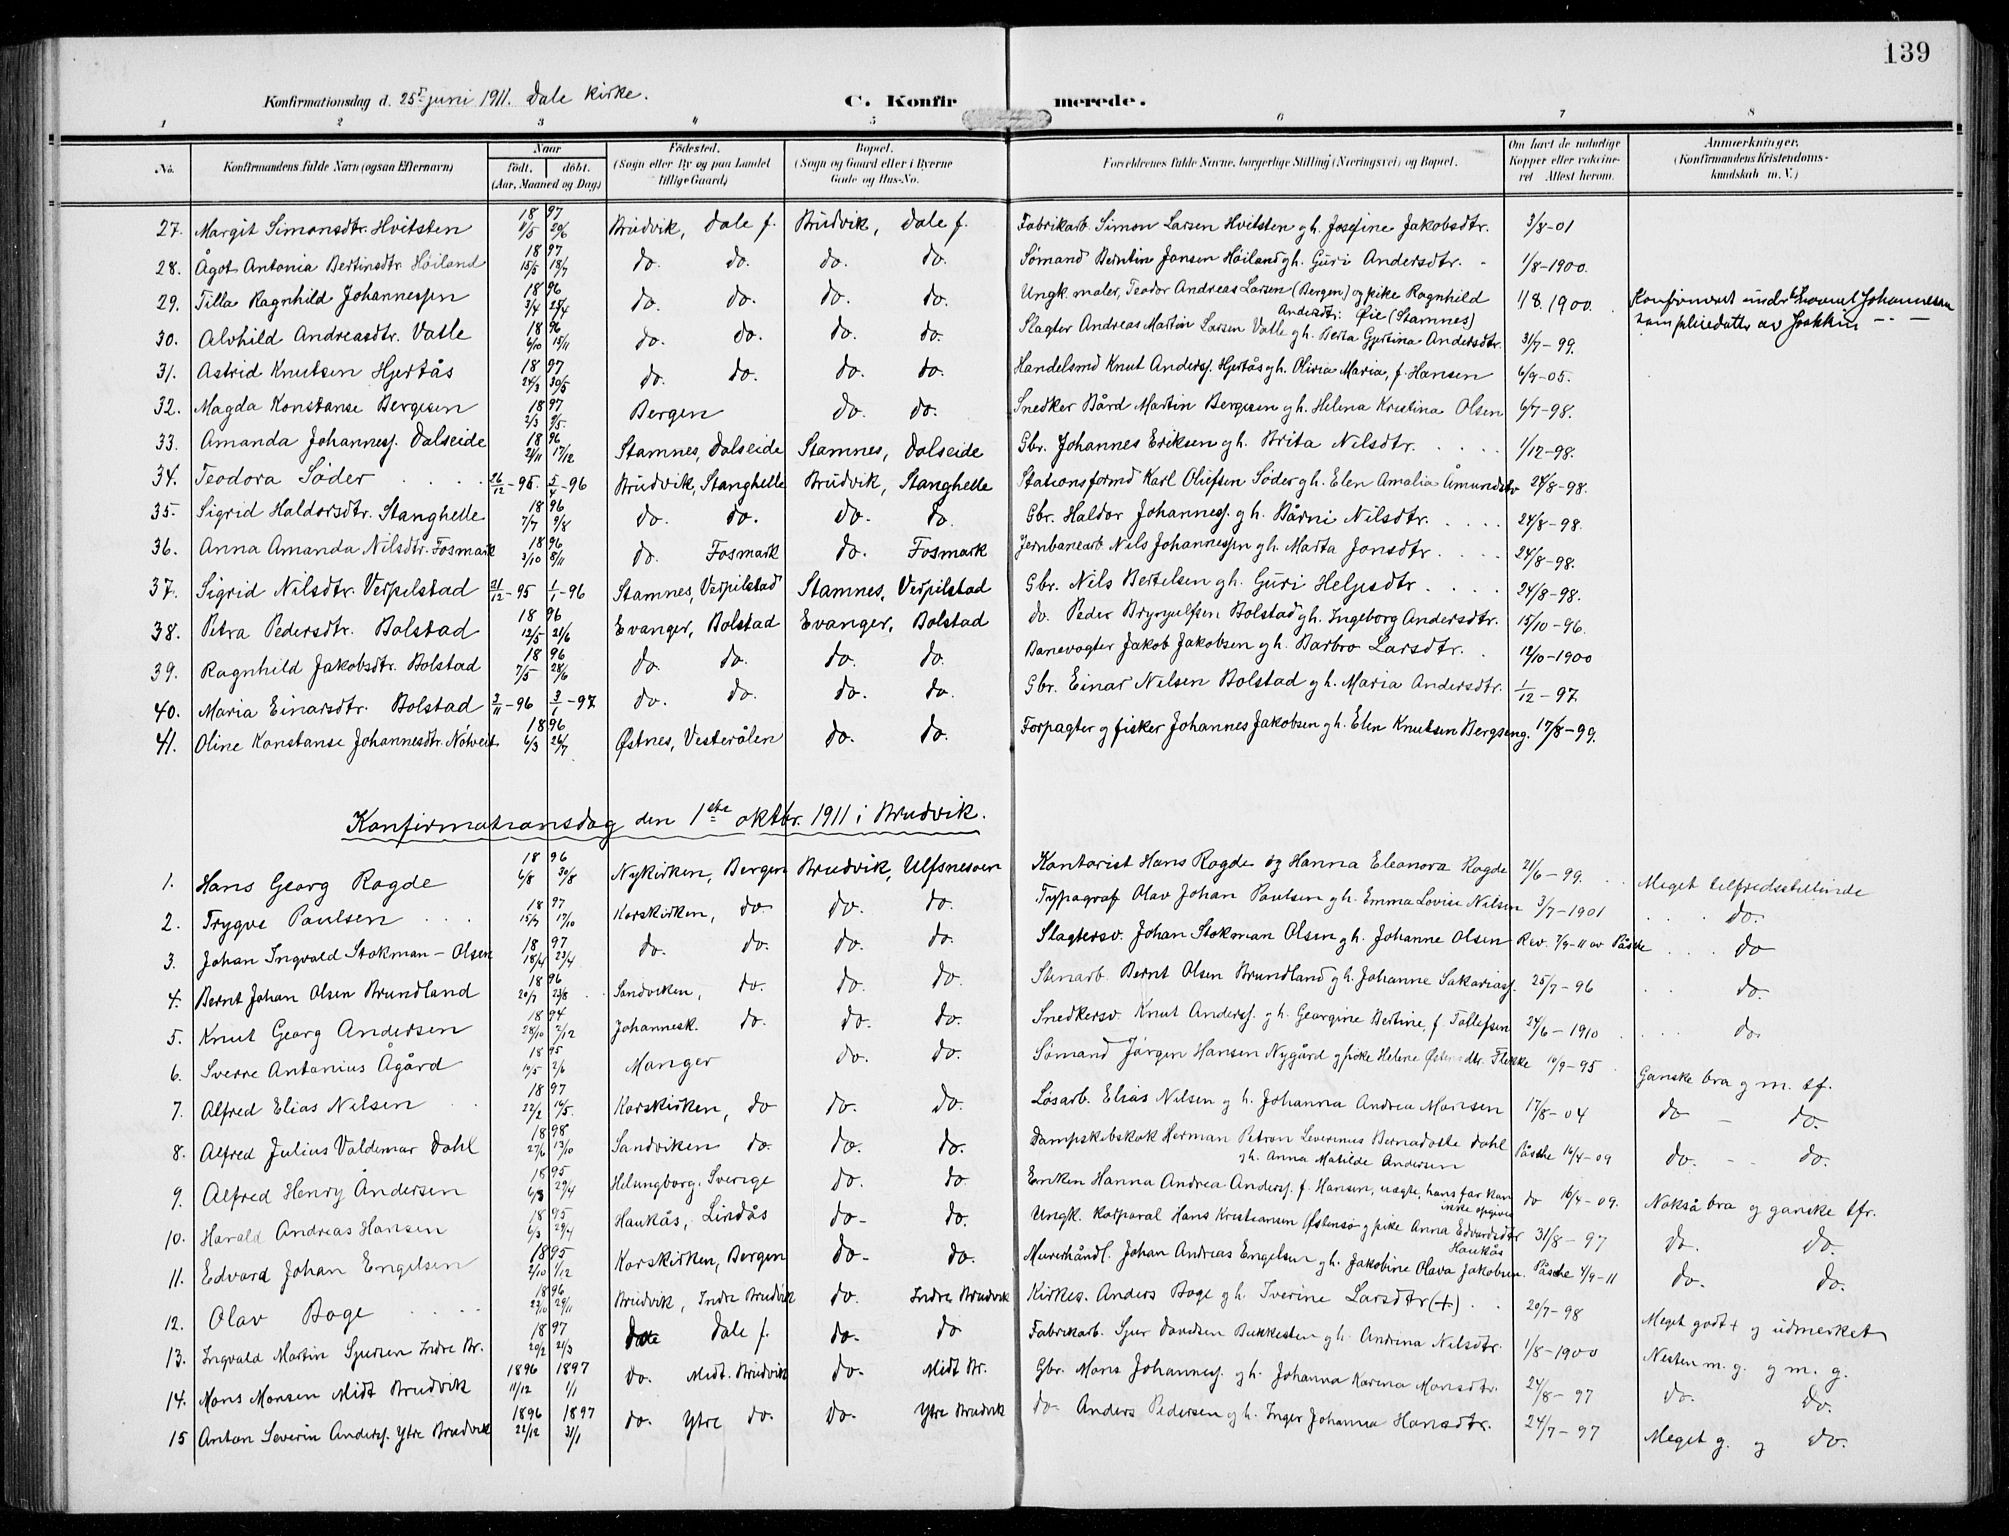 139
Konfirmationsdag d. 25de juni 1911. Dale Kirke. C. Konfirmerede.
1 2 3 4 5 6 7 8
No. Konfirmandens fulde Navn (ogsaa Efternavn) Naar født. døbt. (Aar, Maaned og Dag) Fødested. (Sogn eller By og paa Landet tillige Gaard) Bopæl. (Sogn og Gaard eller i Byerne Gade og Hus-No. Forældrenes fulde Navne, borgerlige Stilling (Næringsvei) og Bopæl. Om havt de naturlige Kopper eller vaccineret Attest herom. Anmerkninger. (Konfirmandens Kristendomskundskab m. V.)
27. Margit Simonsdtr. Hvitsten 1897 11/5 20/6 Brudvik, Dale f. Brudvik, Dale f. Fabrikarb. Simon Larsen Hvitsten g h. Josefine Jakobsdtr. 3/8-01
28. Ågot Antonia Bertinsdtr. Höiland 1897 15/5 18/7 do. do. do. do. Sømand Berntin Jansen Höiland g h. Guri Andersdtr. 1/8-1900.
29. Tilla Ragnhild Johannessen 1896 3/4 28/4 do. do. do. do. Ungk. maler, Teodor Andreas Larsen (Bergen) og pike Ragnhild Andersdtr. Øie (Stamnes) 1/8 1900. Konfirmeret under Johannessen som pleiedatter av
30. Alvhild Andreasdtr. Vatle 1896 6/10 15/11 do. do. do. do. Slagter Andreas Martin Larsen Vatle g h. Berta Gjertina Andersdtr. 31/7-99.
31. Astrid Knutsen Hjertås 1897 24/3 30/5 do. do. do. do. Handelsmd Knut Anders. Hjertås g h. Oliria Maria, f. Hansen 6/9-05.
32. Magda Konstanse Bergesen 1897 2/3 9/5. Bergen do. do. Snedker Bård Martin Bergesen g h. Helena Kristina Olsen 6/7-98.
33. Amanda Johannes. Dalseide 1896 21/11 17/12 Stamnes, Dalseide Stamnes, Dalseide Gbr. Johannes Eriksen g h. Brita Nilsdtr. 1/12-98.
34. Teodora Söder 26/12-95. 5/4-96 Brudvik, Stanghelle Brudvik, Stanghelle Stationsformd Karl Olufsen Söder g h. Elen Amalia Åmundsdtr 24/8-98.
35. Sigrid Haldorsdtr. Stanghelle 1896 7/7 9/8 do. do. do. do. Gbr. Haldor Johannes. g h. Bårni Nilsdtr. 24/8-98.
36. Anna Amanda Nilsdtr. Fosmark 1896 3/10 8/11 do. Fosmark do. Fosmark Jernbanearb Nils Johannessen g h. Marta Jonsdtr. 24/8-98.
37. Sigrid Nilsdtr. Verpilstad 21/12-95 1/1-96 Stamnes, Verpilstad Stamnes, Verpilstad Gbr. Nils Bertelsen g h. Guri Helgesdtr. 24/8-98.
38. Petra Pedersdtr. Bolstad 1896 12/5 21/6 Evanger, Bolstad Evanger, Bolstad do. Peder Brynjulfsen Bolstad g h. Ingeborg Andersdtr. 15/10-96.
39. Ragnhild Jakobsdtr. Bolstad 1896 7/5 28/6 do. do. do. do. Banevogter Jakob Jakobsen g h. Barbro Larsdtr. 12/10-1900
40. Maria Einarsdtr. Bolstad 3/11-96 3/1-97 do. do. do. do. Gbr. Einar Nilsen Bolstad g h. Maria Andersdtr. 1/12-97.
41. Oline Konstanse Johannesdtr. Nötveit 1896 6/3 26/7 Østnes, Vesterålen do. do. Forpagter g fisker Johannes Jakobsen g h. Elen Knutsen Bergseng. 17/8-99.
Konfirmationsdag den 1ste oktbr. 1911 i Brudvik.
1. Hans Georg Rogde 1896 6/8 30/8 Nykirken, Bergen Brudvik, Ulfsnesøen Kontorist Hans Rogde og Hanna Eleonora Rogde 21/6-99. Meget tilfredsstillende
2. Trygve Paulsen 1897 15/7 17/10 Korskirken, do. do. do. Typograf Olav Johan Paulsen g h. Emma Lovise Nilsen 3/7-1901 do.
3. Johan Ingvald Stokman-Olsen 1897 18/4 23/4 do. do. do. do. Slagtersv. Johan Stokman Olsen g h. Johanne Olsen Rev. 7/9-11 av Påsche do
4. Bernt Johan Olsen Brundland 1896 20/7 23/8 Sandviken, do. do. do. Stenarb. Bernt Olsen Brundland g h. Johanne Sakarias. 25/7-96 do.
5. Knut Georg Andersen 1894 28/10 2/12 Johannesk. do. do. do. Snedkersv. Knut Anders. g h. Georgine Bertine, f. Tollefsen 24/6-1910 do.
6. Sverre Antonius Ågård 1895 10/5 2/6 Manger do. do. Sømand Jörgen Hansen Nygård g pike Helene Østensdtr. Flekke 10/9-95 Ganske bra g m. tf.
7. Alfred Elias Nilsen 1897 22/2 16/5. Korskirken, do do. do. Løsarb. Elias Nilsen g h. Johanna Andrea Monsen 17/8-04 do - do.
8. Alfred Julius Valdemar Dahl 1898 27/6 13/10 Sandviken do. do. do. Dampskibskok Herman Petron Severinus Bernadotte Dahl g h. Anna Matilde Andersen Påsche 16/4-09 do. - do.
9. Alfred Henry Andersen 1895 6/3 29/4 Helsingborg. Sverige do. do Enken Hanna Andrea Anders. f. Hansen, uegte, hans far kan ikke opgives do 16/4-09. Nokså bra g ganske tfr.
10. Harald Andreas Hansen 1895 6/3 29/4 Haukås, Lindås do- do. Ungk. korporal Hans Kristiansen Østensø g pike Anna Edvardsdtr Haukås 31/8-97 do. do.
11. Edvard Johan Engelsen 1895 2/10 1/12 Korskirken, Bergen do- do. Murerhåndl. Johan Andreas Engelsen g h. Jakobine Olava Jakobsen. Påsche 4/9-11 do. do.
12. Olav Boge 1896 23/10 29/11 Brudvik, Indre Brudvik do. Indre Brudvik Kirkes. Anders Boge g h. Iverine Larsdtr (+) 20/7-98 Meget godt + g udmerket
13. Ingvald Martin Sjursen Indre Br. 1897 20/2 21/3 Dale f. do- do Fabrikarb. Sjur Davidsen Bukkesten g h. Andrina Nilsdtr. 1/8-1900 Nesten m. g. g m. g.
14. Mons Monsen Midt Brudvik 1896 1897 11/12 1/1 do. Midt. Brudvik do- Midt Br. Gbr. Mons Johannes. g h. Johanna Karina Monsdtr. 24/8-97 do. do.
15 Anton Severin Anders. Ytre Brudvik 1896 1897 22/12 31/1 do. Ytre do. do- Ytre Brudvik do- Anders Pedersen g h. Inger Johanna Hansdtr. 24/7-97 Meget g. g do.